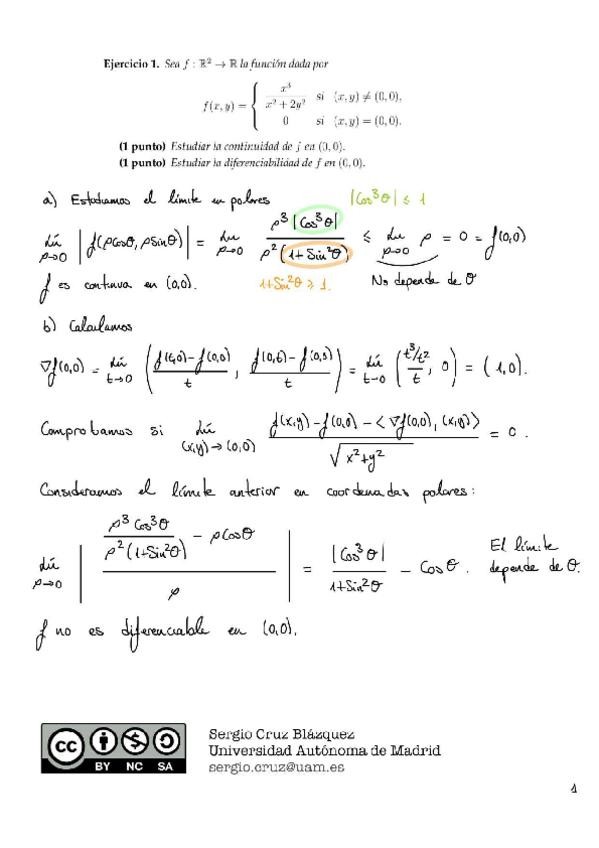 Ejercicio 1. Sea f : ℝ² → ℝ la función dada por
f(x, y) = { x³ / (x² + 2y²) si (x, y) ≠ (0, 0),
0 si (x, y) = (0, 0).
(1 punto) Estudiar la continuidad de f en (0, 0).
(1 punto) Estudiar la diferenciabilidad de f en (0, 0).
a) Estudiamos el límite en polares |Cos³θ| ≤ 1
Lím ρ→0 |f(ρcosθ, ρsinθ)| = Lím ρ→0 ρ³|Cos³θ| / ρ²(1+Sin²θ) ≤ Lím ρ→0 ρ = 0 = f(0,0)
f es continua en (0,0). 1+Sin²θ ≥ 1. No depende de θ
b) Calculamos
∇f(0,0) = Lím t→0 ( (f(t,0)-f(0,0)) / t , (f(0,t)-f(0,0)) / t ) = Lím t→0 ( (t³/t²) / t , 0 ) = (1,0).
Comprobamos si Lím (x,y)→(0,0) (f(x,y)-f(0,0)-<∇f(0,0),(x,y)>) / √(x²+y²) = 0.
Consideramos el límite anterior en coordenadas polares:
Lím ρ→0 | (ρ³Cos³θ / ρ²(1+Sin²θ) - ρCosθ) / ρ | = |Cos³θ| / (1+Sin²θ) - Cosθ. El límite depende de θ.
f no es diferenciable en (0,0).
cc BY NC SA
Sergio Cruz Blázquez
Universidad Autónoma de Madrid
sergio.cruz@uam.es
1